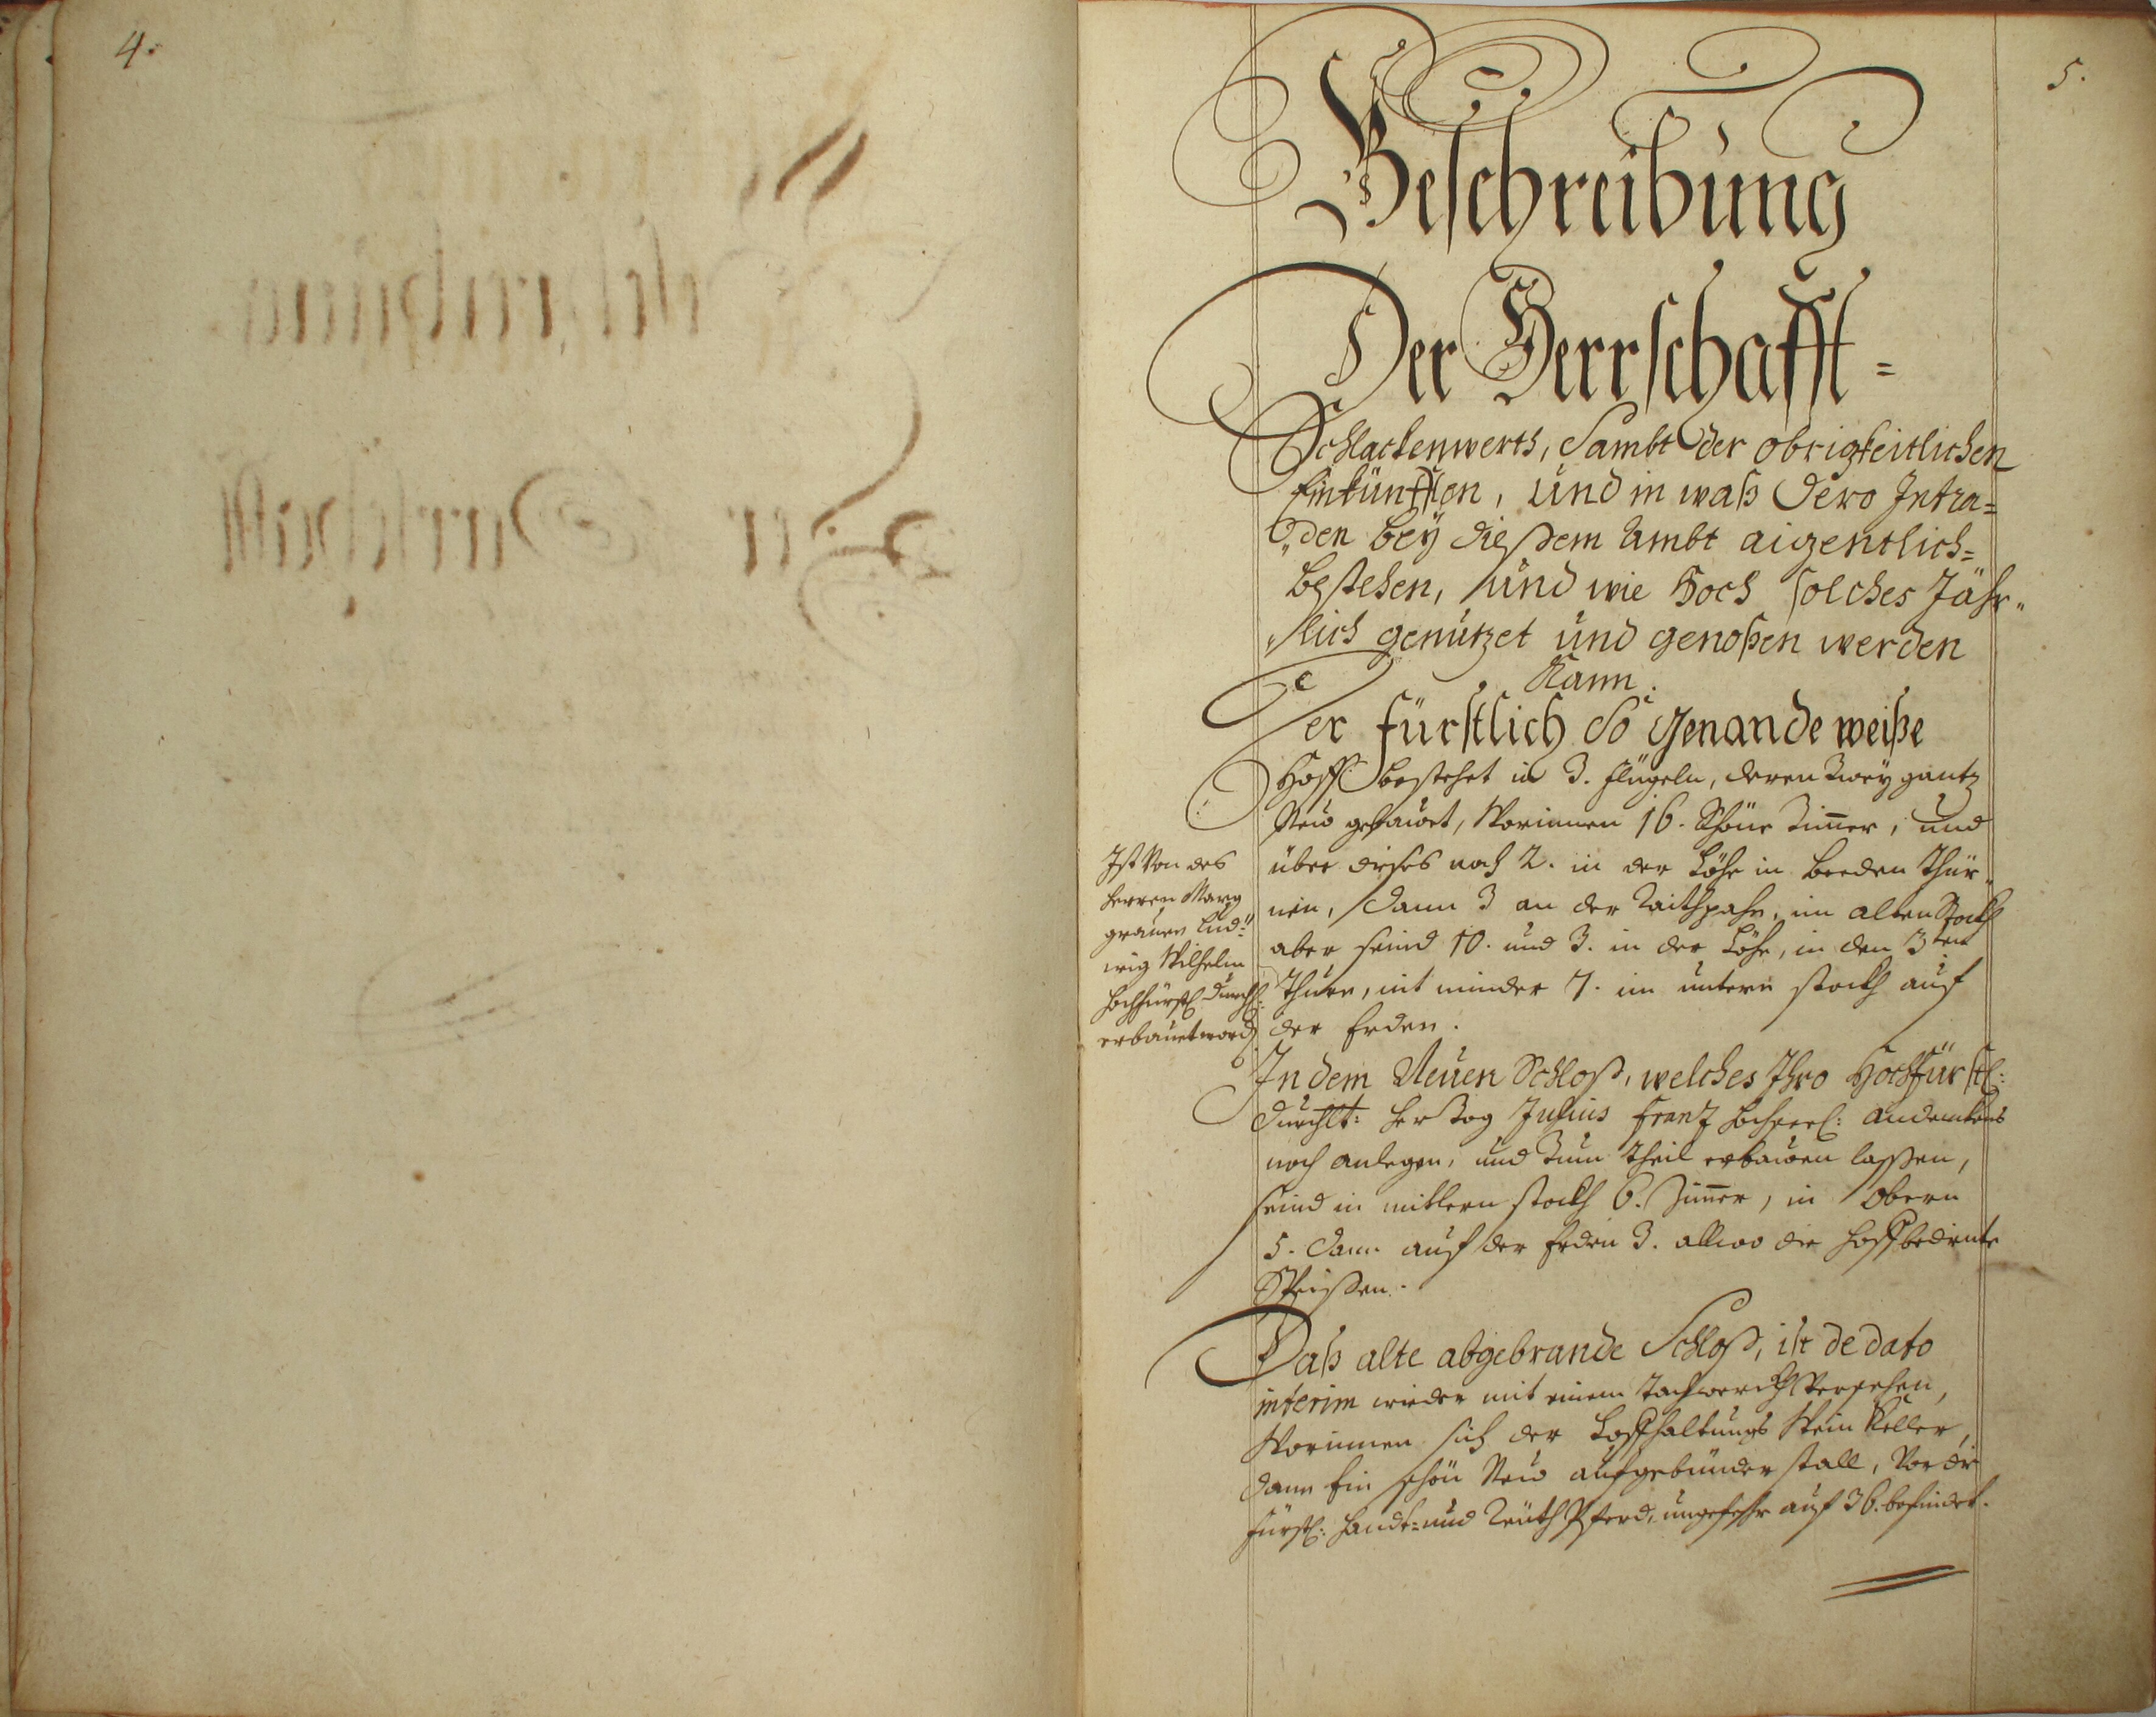 4.
5.
Beschreibung
Der Herrschafft=
Schlackenwerth, Sambt der obrigkeitlichen
Einkünfften, und in waß dero Intra=
den bey dießem Ambt aigentlich=
bestehen, und wie hoch solches Jähr„
„lich genutzet und genoßen werden
Kann.
Der fürstlich so genande weiße
Hoff bestehet in 3. Flügeln, deren Zwey gantz
Neu gebauet, Worinnen 16. Schöne Zim̄er, und
über dieses noch 2. in der Höhe in beeden Thür„
nen, dann 3 an der Raithpahn, im alten Stockh
aber seind 10. und 3. in der Höhe, in den 3ten
Thurn, nit minder 7. im untern stockh auf
der Erden.
Ist Von des
Herren Marg
graven Lud=
wig Wilhelm
hochfürstl: Durchl:
erbauet word
In dem Neuen Schloß, welches Ihro Hochfürstl:
Durchlt: Hertzog Julius Frantz Andenkens
noch anlegen, und Zum theil erbauen laßen,
seind in mitlern stockh 6. Zim̄er, in Obern
5. dann auf der Erden 3. allwo die Hoffbediente
Speißen.
Daß alte abgebrande Schloß, ist de dato
interim wieder mit einem Tachwerckh Versehen,
Worinnen sich der Hoffhaltungs Wein Keller,
dann Ein schön Neu stall, Vor die
Fürstl: Handt= und Reüth Pferd, ungefehr auf 36. befindet.